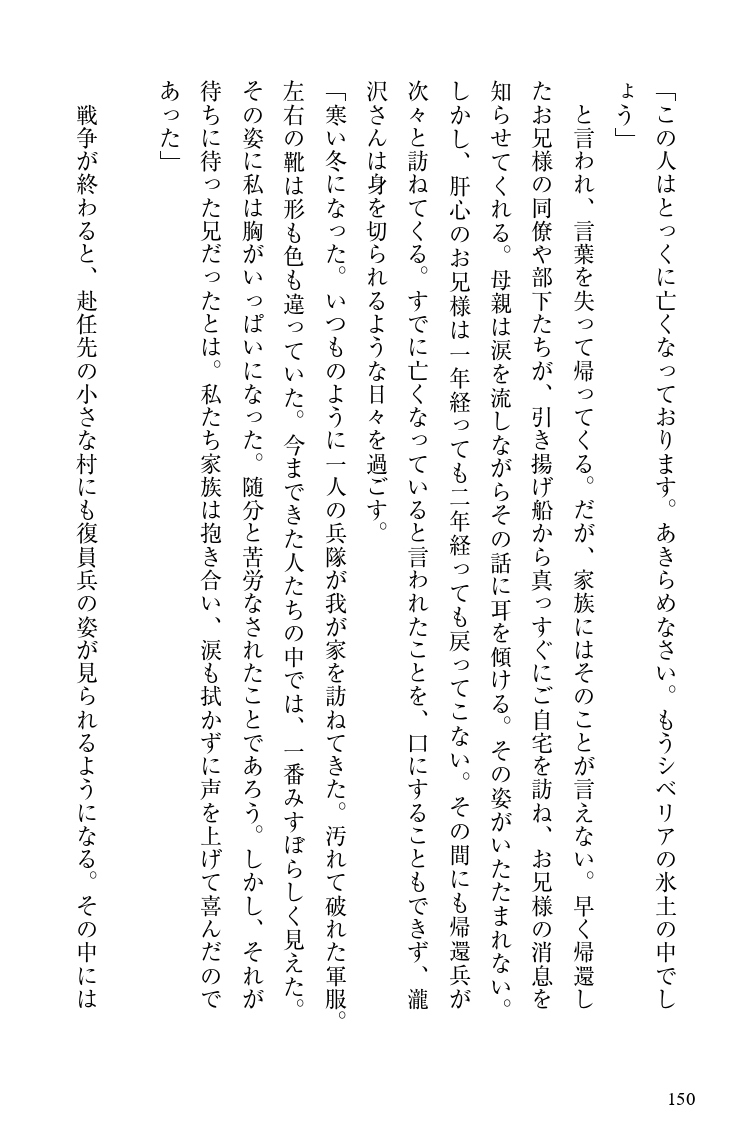 「この人はとっくに亡くなっております。あきらめなさい。もうシベリアの氷土の中でし
ょう」
と言われ、言葉を失って帰ってくる。だが、家族にはそのことが言えない。早く帰還し
たお兄様の同僚や部下たちが、引き揚げ船から真っすぐにご自宅を訪ね、お兄様の消息を
知らせてくれる。母親は涙を流しながらその話に耳を傾ける。その姿がいたたまれない。
しかし、肝心のお兄様は一年経っても二年経っても戻ってこない。その間にも帰還兵が
次々と訪ねてくる。すでに亡くなっていると言われたことを、口にすることもできず、瀧
沢さんは身を切られるような日々を過ごす。
「寒い冬になった。いつものように一人の兵隊が我が家を訪ねてきた。汚れて破れた軍服。
左右の靴は形も色も違っていた。今まできた人たちの中では、一番みすぼらしく見えた。
その姿に私は胸がいっぱいになった。随分と苦労なされたことであろう。しかし、それが
待ちに待った兄だったとは。私たち家族は抱き合い、涙も拭かずに声を上げて喜んだので
あった」
戦争が終わると、赴任先の小さな村にも復員兵の姿が見られるようになる。その中には
150